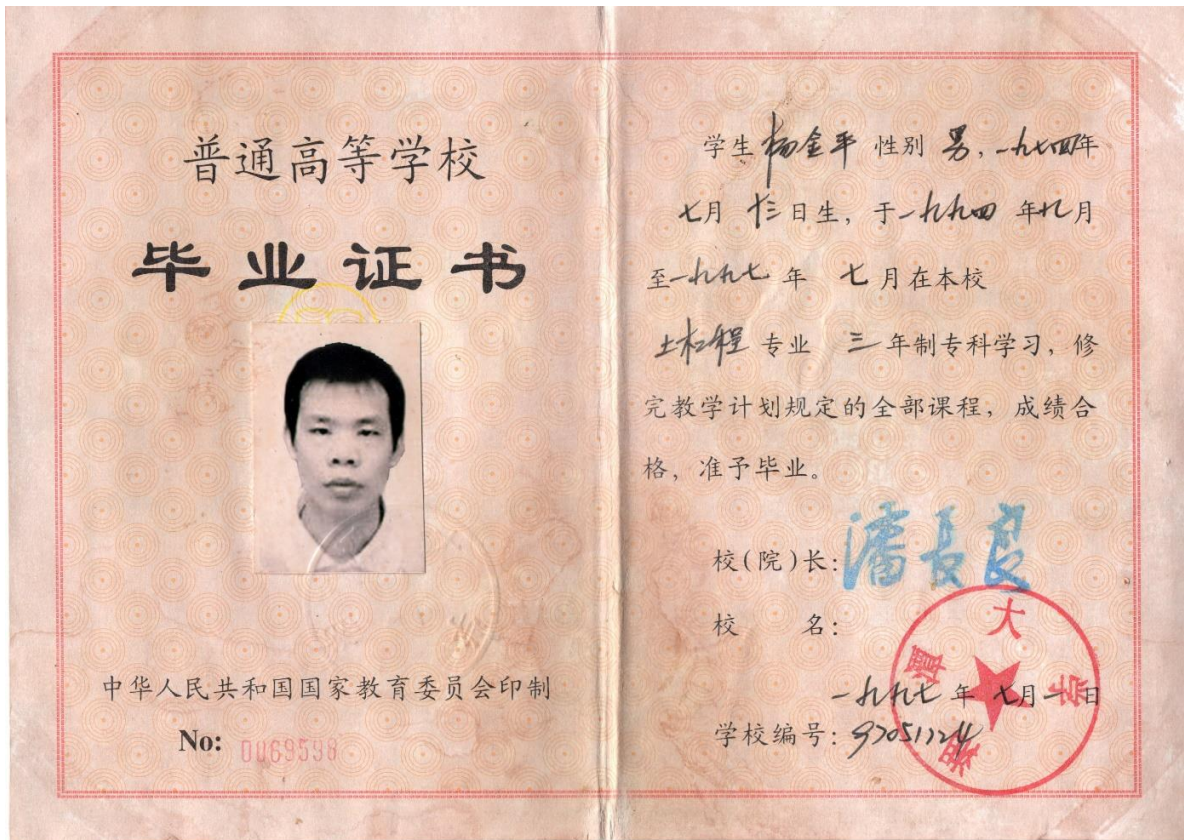 普通高等学校
毕业证书
中华人民共和国国家教育委员会印制
No: 0069598
学生 杨金平 性别 男，一九七四年
七月 十三日生，于一九九四 年九月
至一九九七 年 七月在本校
土木工程 专业 三 年制专科学习，修
完教学计划规定的全部课程，成绩合
格，准予毕业。
校(院)长：潘长良
校 名：
湘潭大学
一九九七 年 七月一日
学校编号：97051724